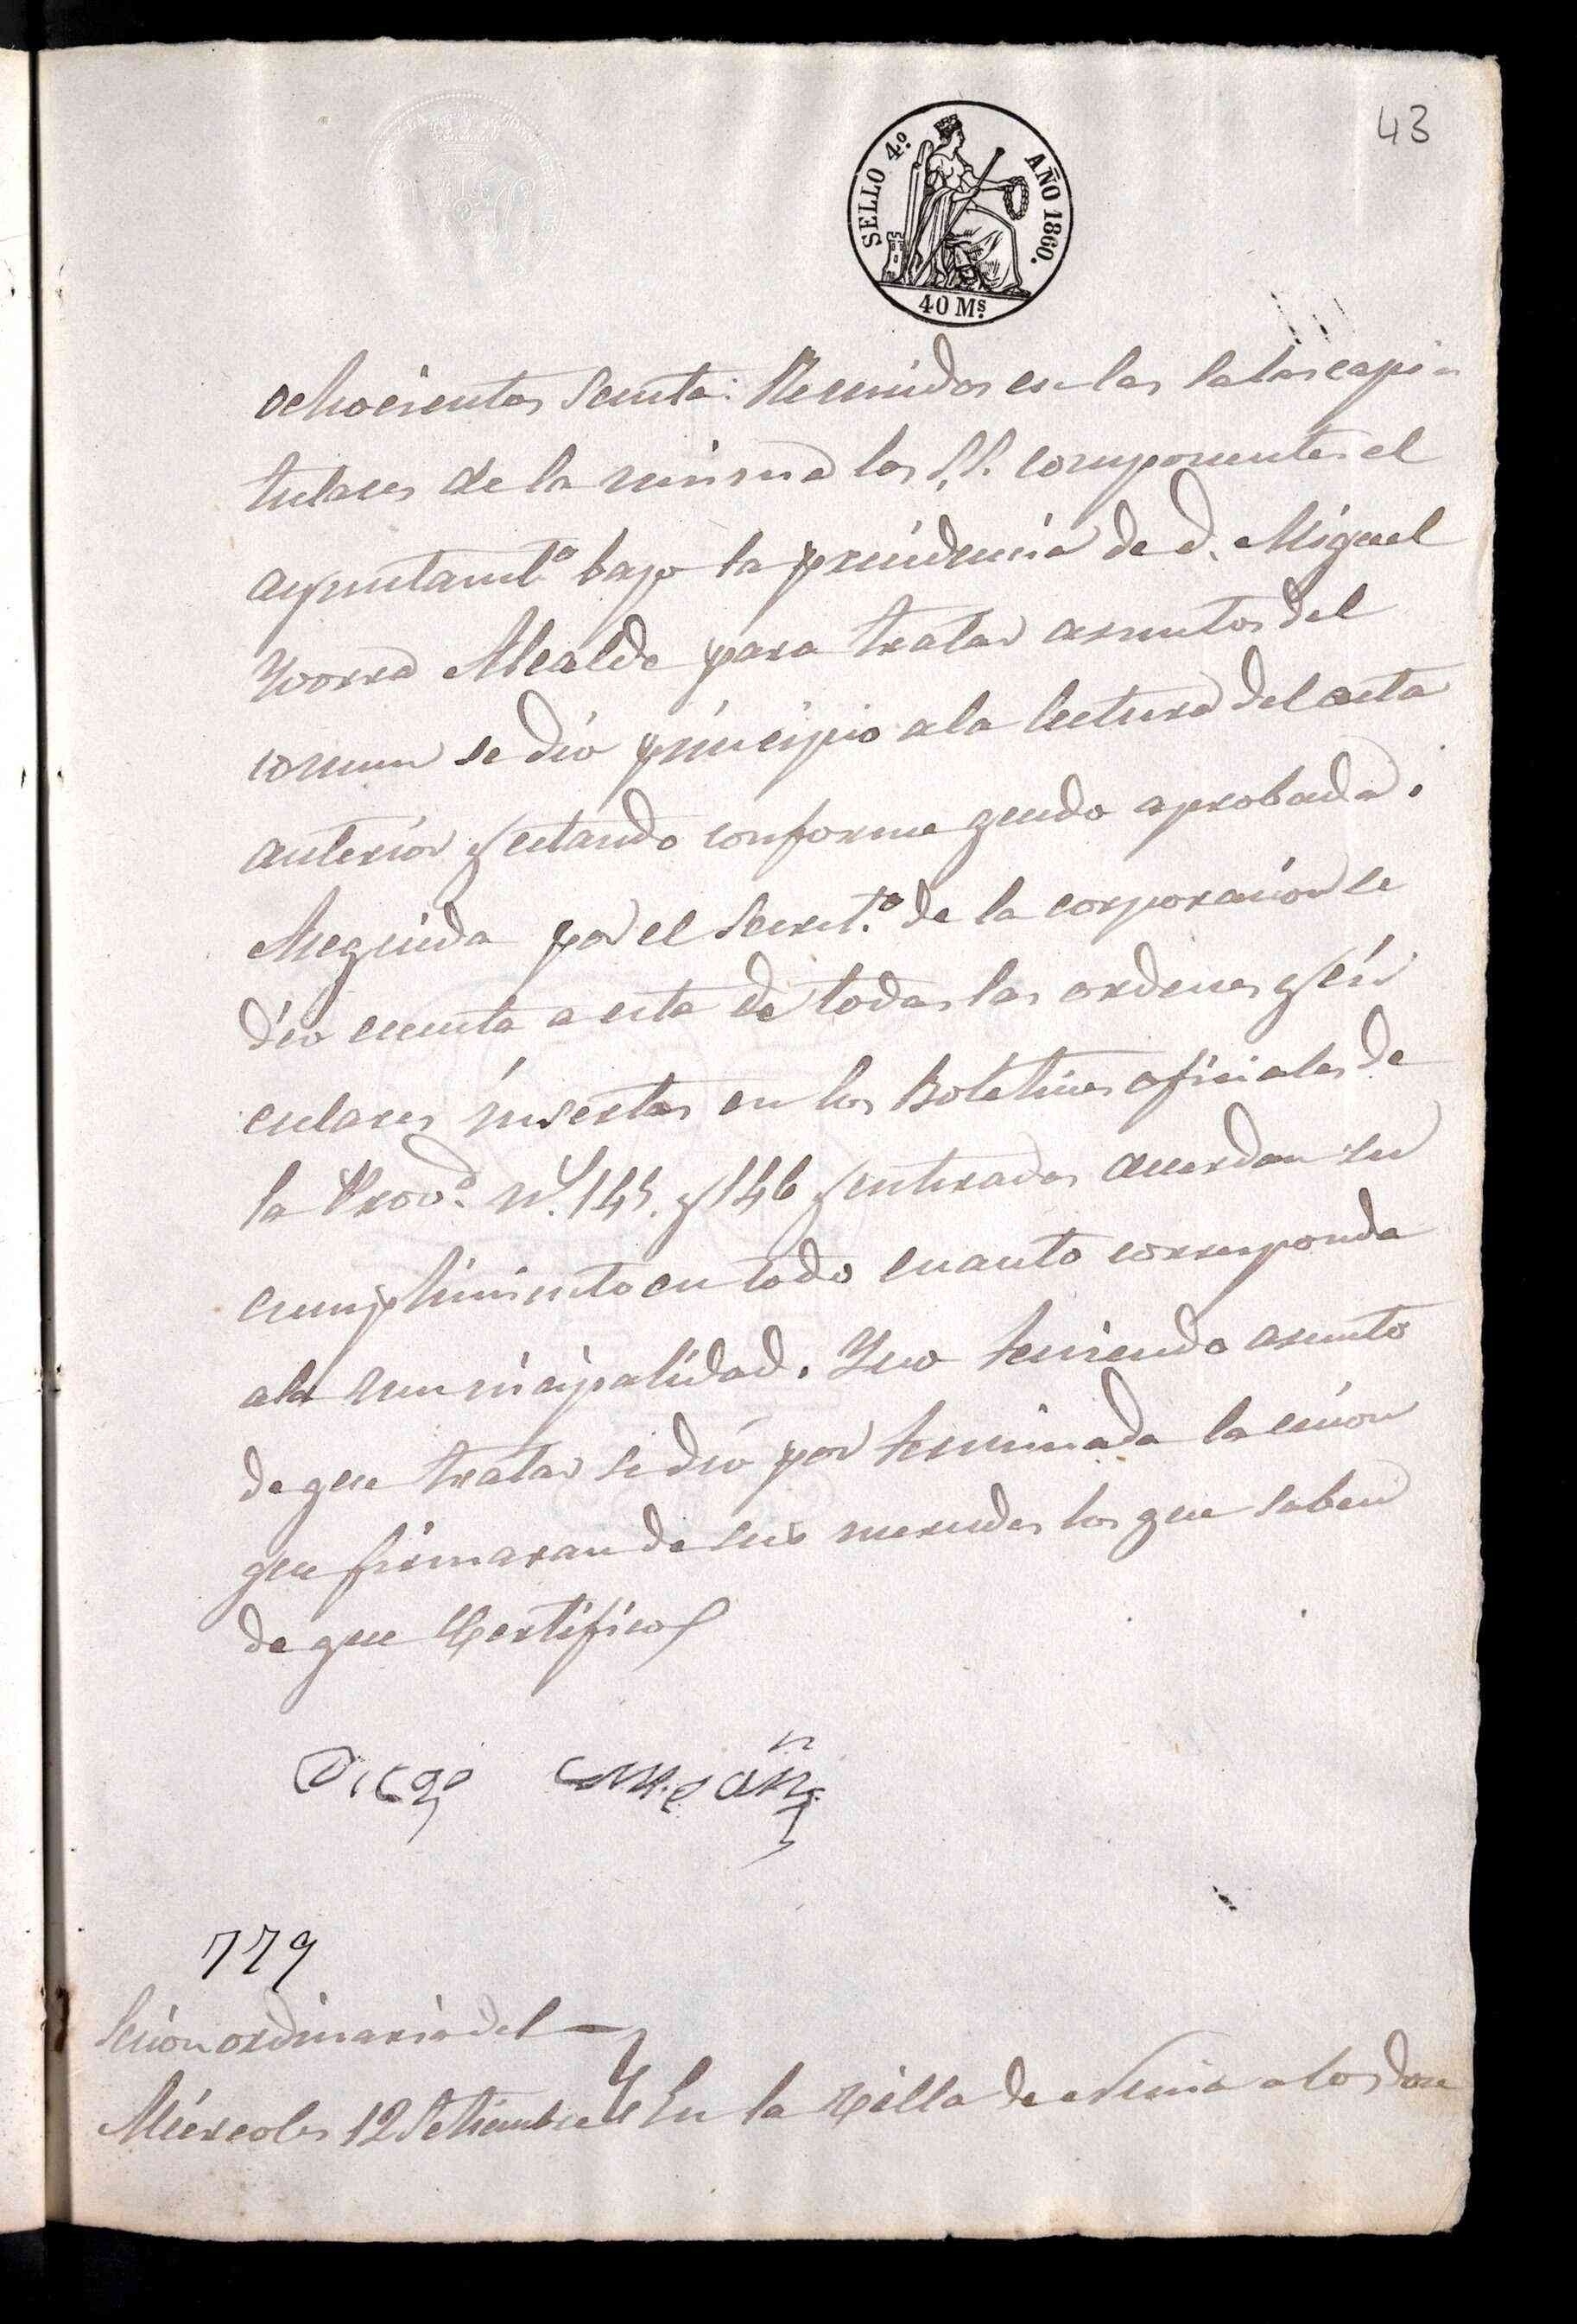 43
SELLO 4.º AÑO 1860.
40 Ms.
ochocientos Senta: Reunidos en las salas capi-
tulares de la misma los S.S. componentes el
ayuntamt.º bajo la precidencia de d. Miguel
Yvorra Alcalde para tratar asuntos del
comun se dió principio a la lectura del acta
anterior y estando conforme quedo aprobada.
Aseguida por el Secret.º de la corporacion se
dio cuenta a esta de todas las ordenes y cir
culares insertas en los Boletines oficiales de
la Prov.ª n.º 145. y 146 y enterados acuerdan su
cumplimiento en todo cuanto corresponda
ala municipalidad. Y no teniendo asunto
de que tratar se dió por terminada la cecion
que firmaran de sus mercedes los que saben
de que Certifico
Diego
779
Secion ordinaria del
Miércoles 12 Setiembre En la Villa de a los doce